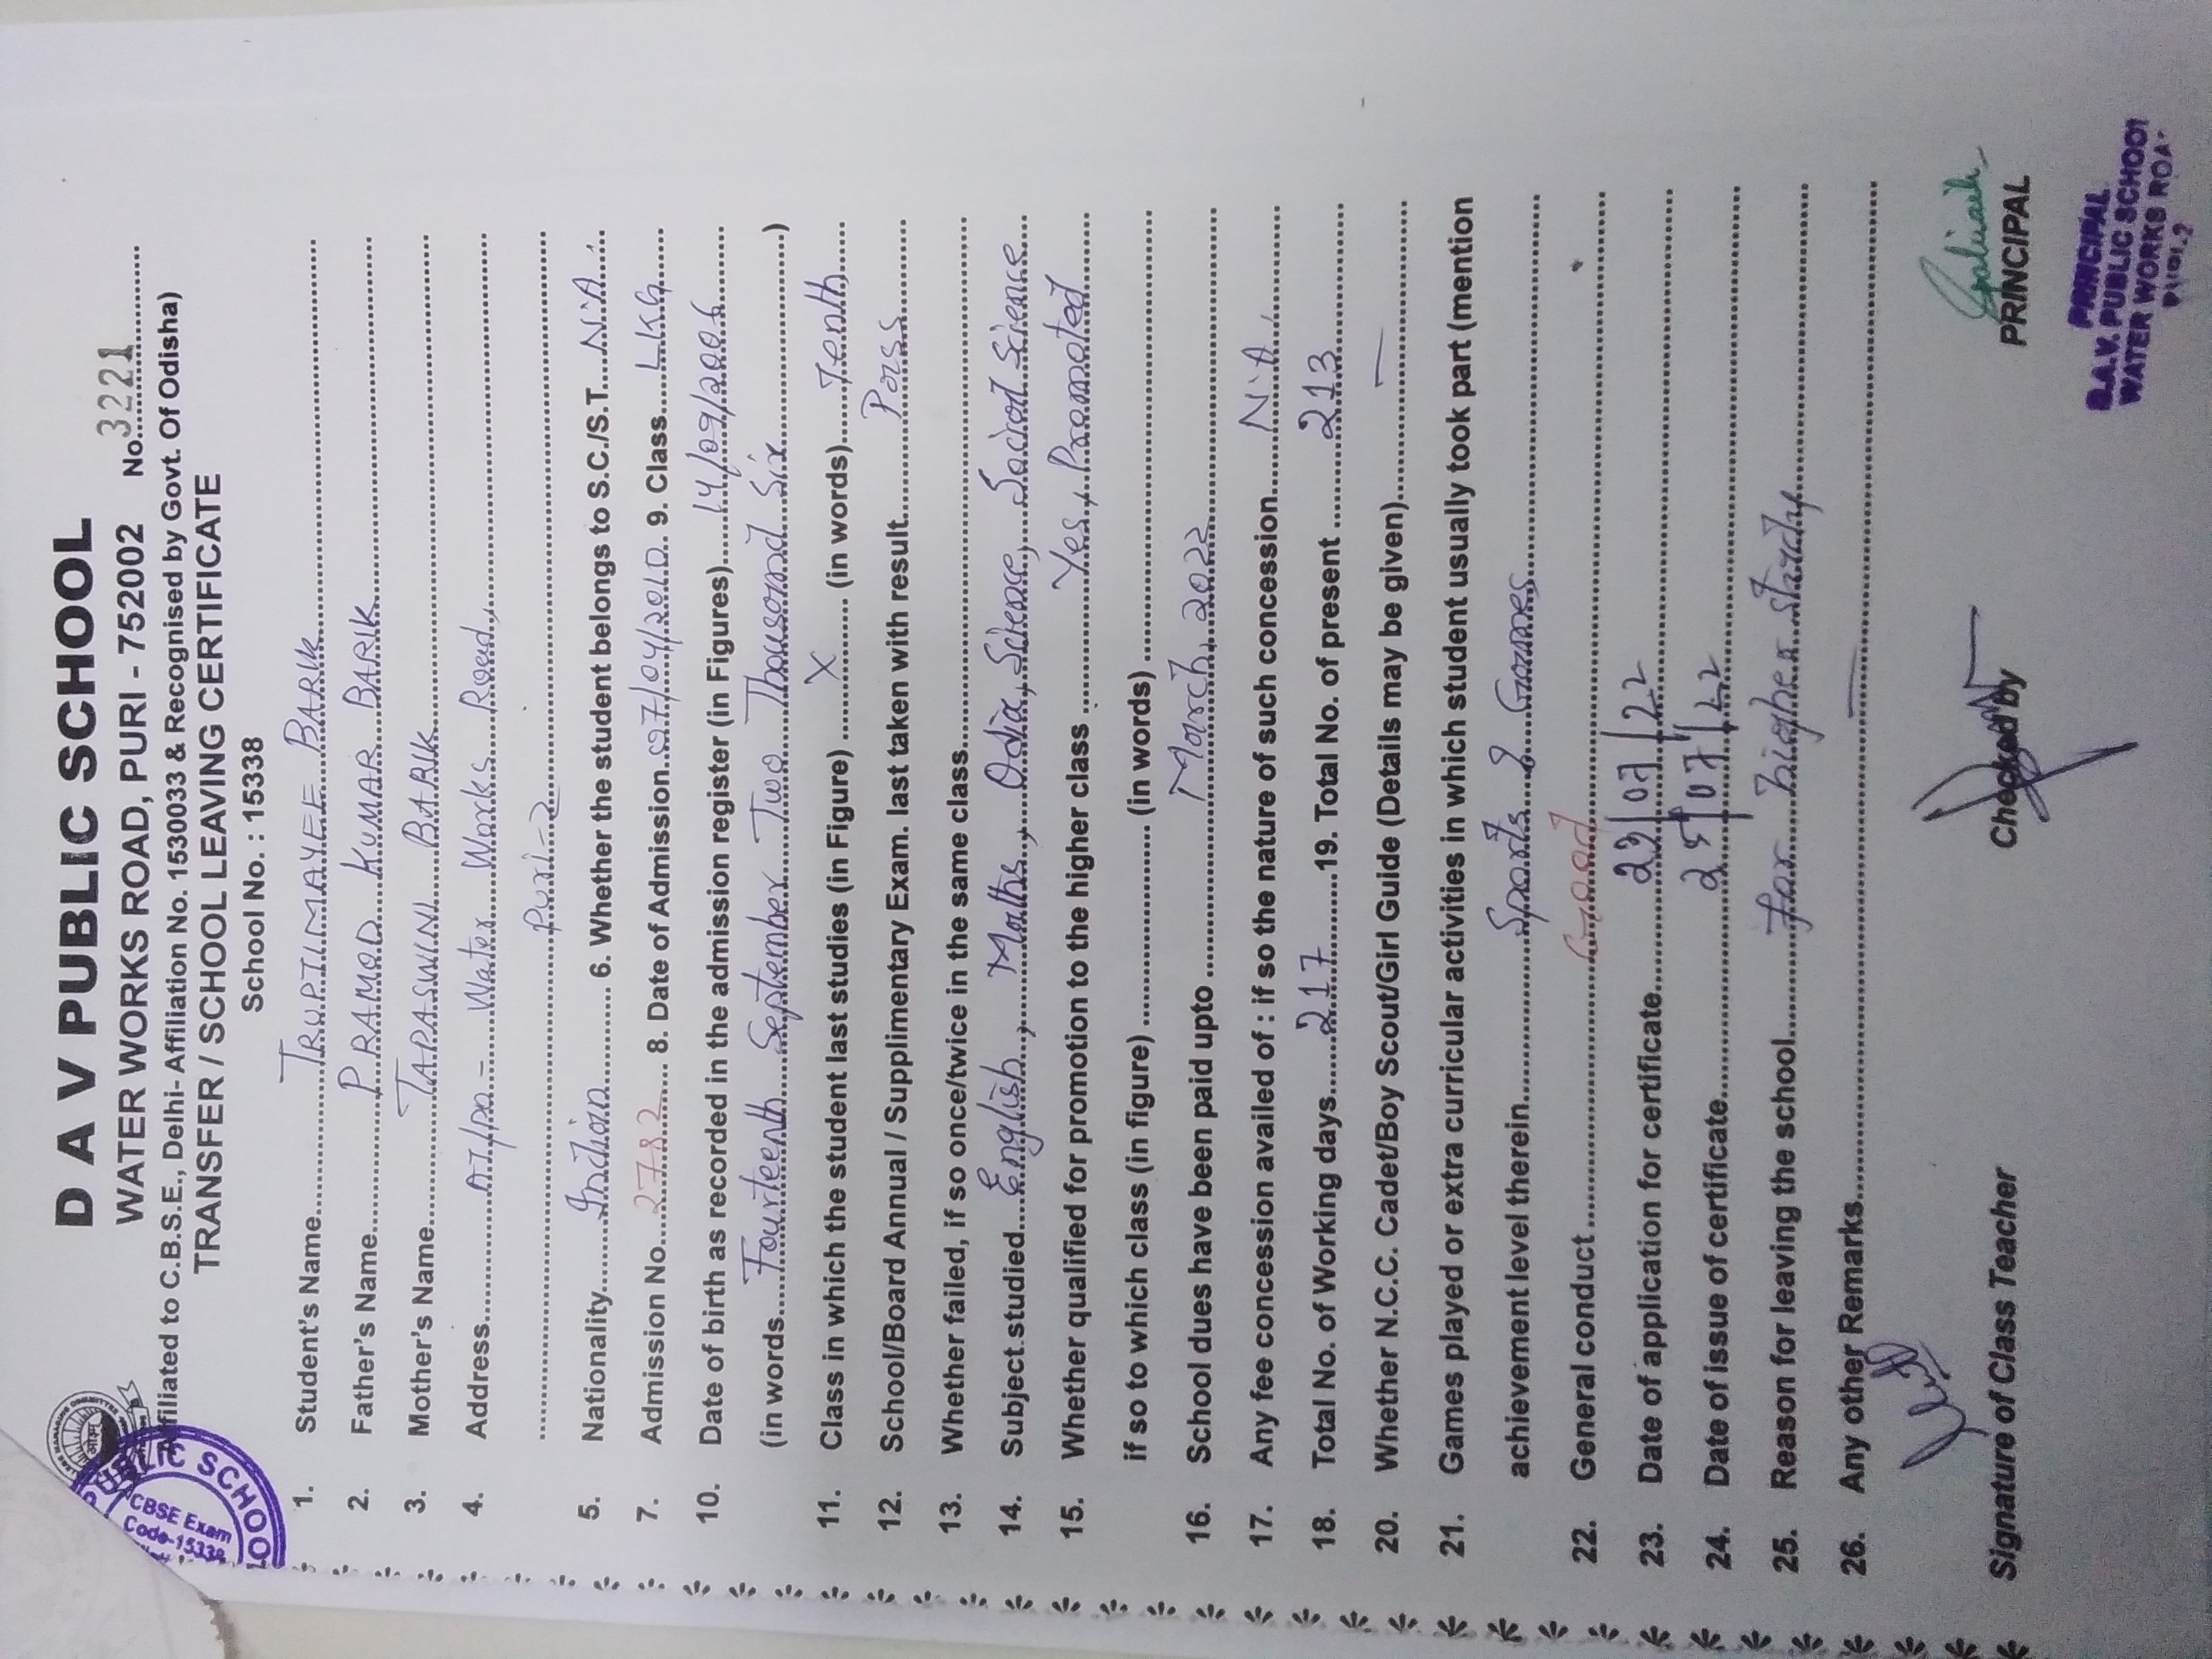 D A V PUBLIC SCHOOL
WATER WORKS ROAD, PURI - 752002 No. 3221
Affiliated to C.B.S.E., Delhi- Affiliation No. 1530033 & Recognised by Govt. Of Odisha)
TRANSFER / SCHOOL LEAVING CERTIFICATE
School No. : 15338
PUBLIC SCHOOL
CBSE Exam
Code-15338
1. Student's Name TRUPTIMAYEE BARIK
2. Father's Name PRAMOD KUMAR BARIK
3. Mother's Name TAPASWINI BARIK
4. Address AT/po - Water Works Road,
Puri-2
5. Nationality Indian 6. Whether the student belongs to S.C./S.T. N.A.
7. Admission No. 2782 8. Date of Admission 07/04/2010 9. Class LKG
10. Date of birth as recorded in the admission register (in Figures) 14/09/2006
(in words Fourteenth September Two Thousand Six)
11. Class in which the student last studies (in Figure) X (in words) Tenth
12. School/Board Annual / Supplimentary Exam. last taken with result Pass
13. Whether failed, if so once/twice in the same class
14. Subject.studied English, Maths, Odia, Science, Social Science
15. Whether qualified for promotion to the higher class Yes, Promoted
if so to which class (in figure) (in words)
16. School dues have been paid upto March, 2022
17. Any fee concession availed of : if so the nature of such concession N.A.
18. Total No. of Working days 217 19. Total No. of present 213
20. Whether N.C.C. Cadet/Boy Scout/Girl Guide (Details may be given) —
21. Games played or extra curricular activities in which student usually took part (mention
achievement level therein Sports & Games
22. General conduct Good
23. Date of application for certificate 23/07/22
24. Date of issue of certificate 25/07/22
25. Reason for leaving the school For higher study
26. Any other Remarks —
Signature of Class Teacher Checked by PRINCIPAL
PRINCIPAL
D.A.V. PUBLIC SCHOOL
WATER WORKS ROA